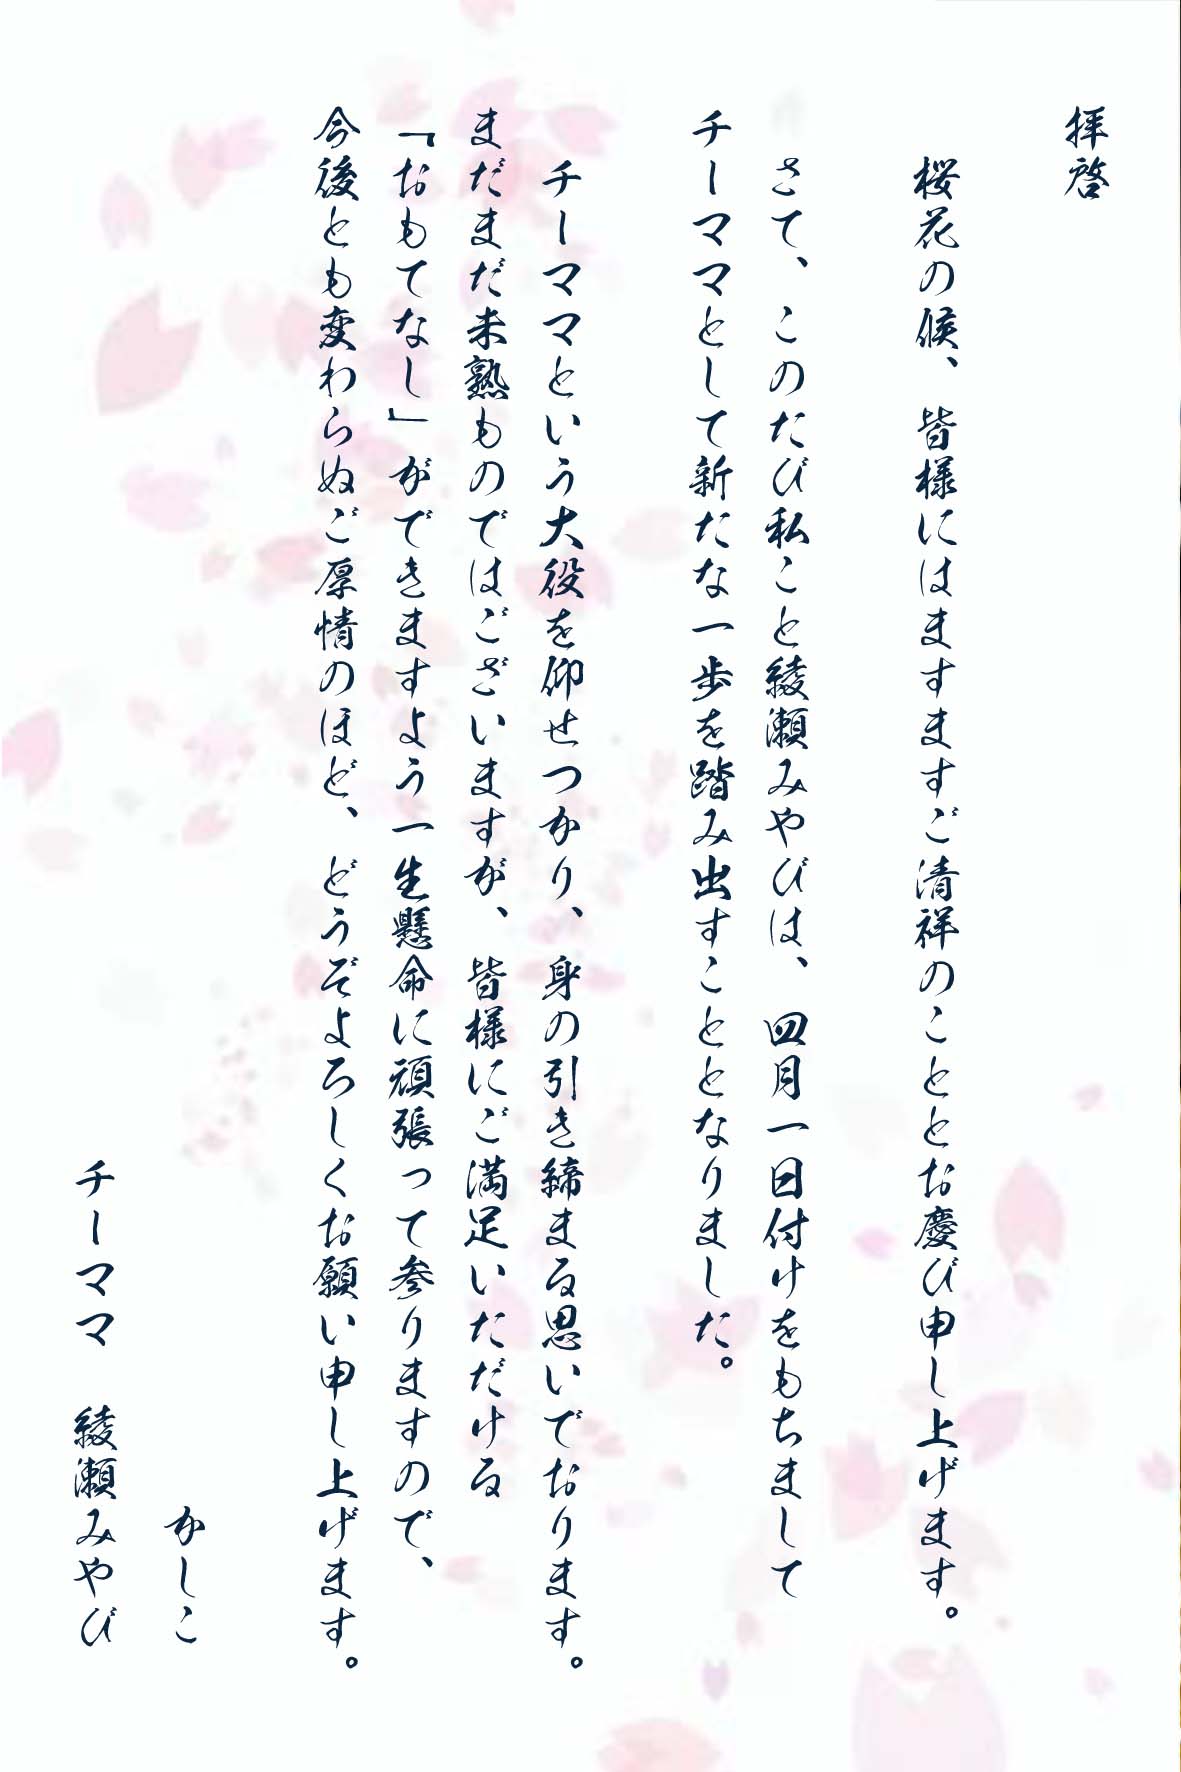 拝啓
桜花の候、皆様にはますますご清祥のこととお慶び申し上げます。
さて、このたび私こと綾瀬みやびは、四月一日付けをもちまして
チーママとして新たな一歩を踏み出すこととなりました。
チーママという大役を仰せつかり、身の引き締まる思いでおります。
まだまだ未熟ものではございますが、皆様にご満足いただける
「おもてなし」ができますよう一生懸命に頑張って参りますので、
今後とも変わらぬご厚情のほど、どうぞよろしくお願い申し上げます。
かしこ
チーママ　綾瀬みやび